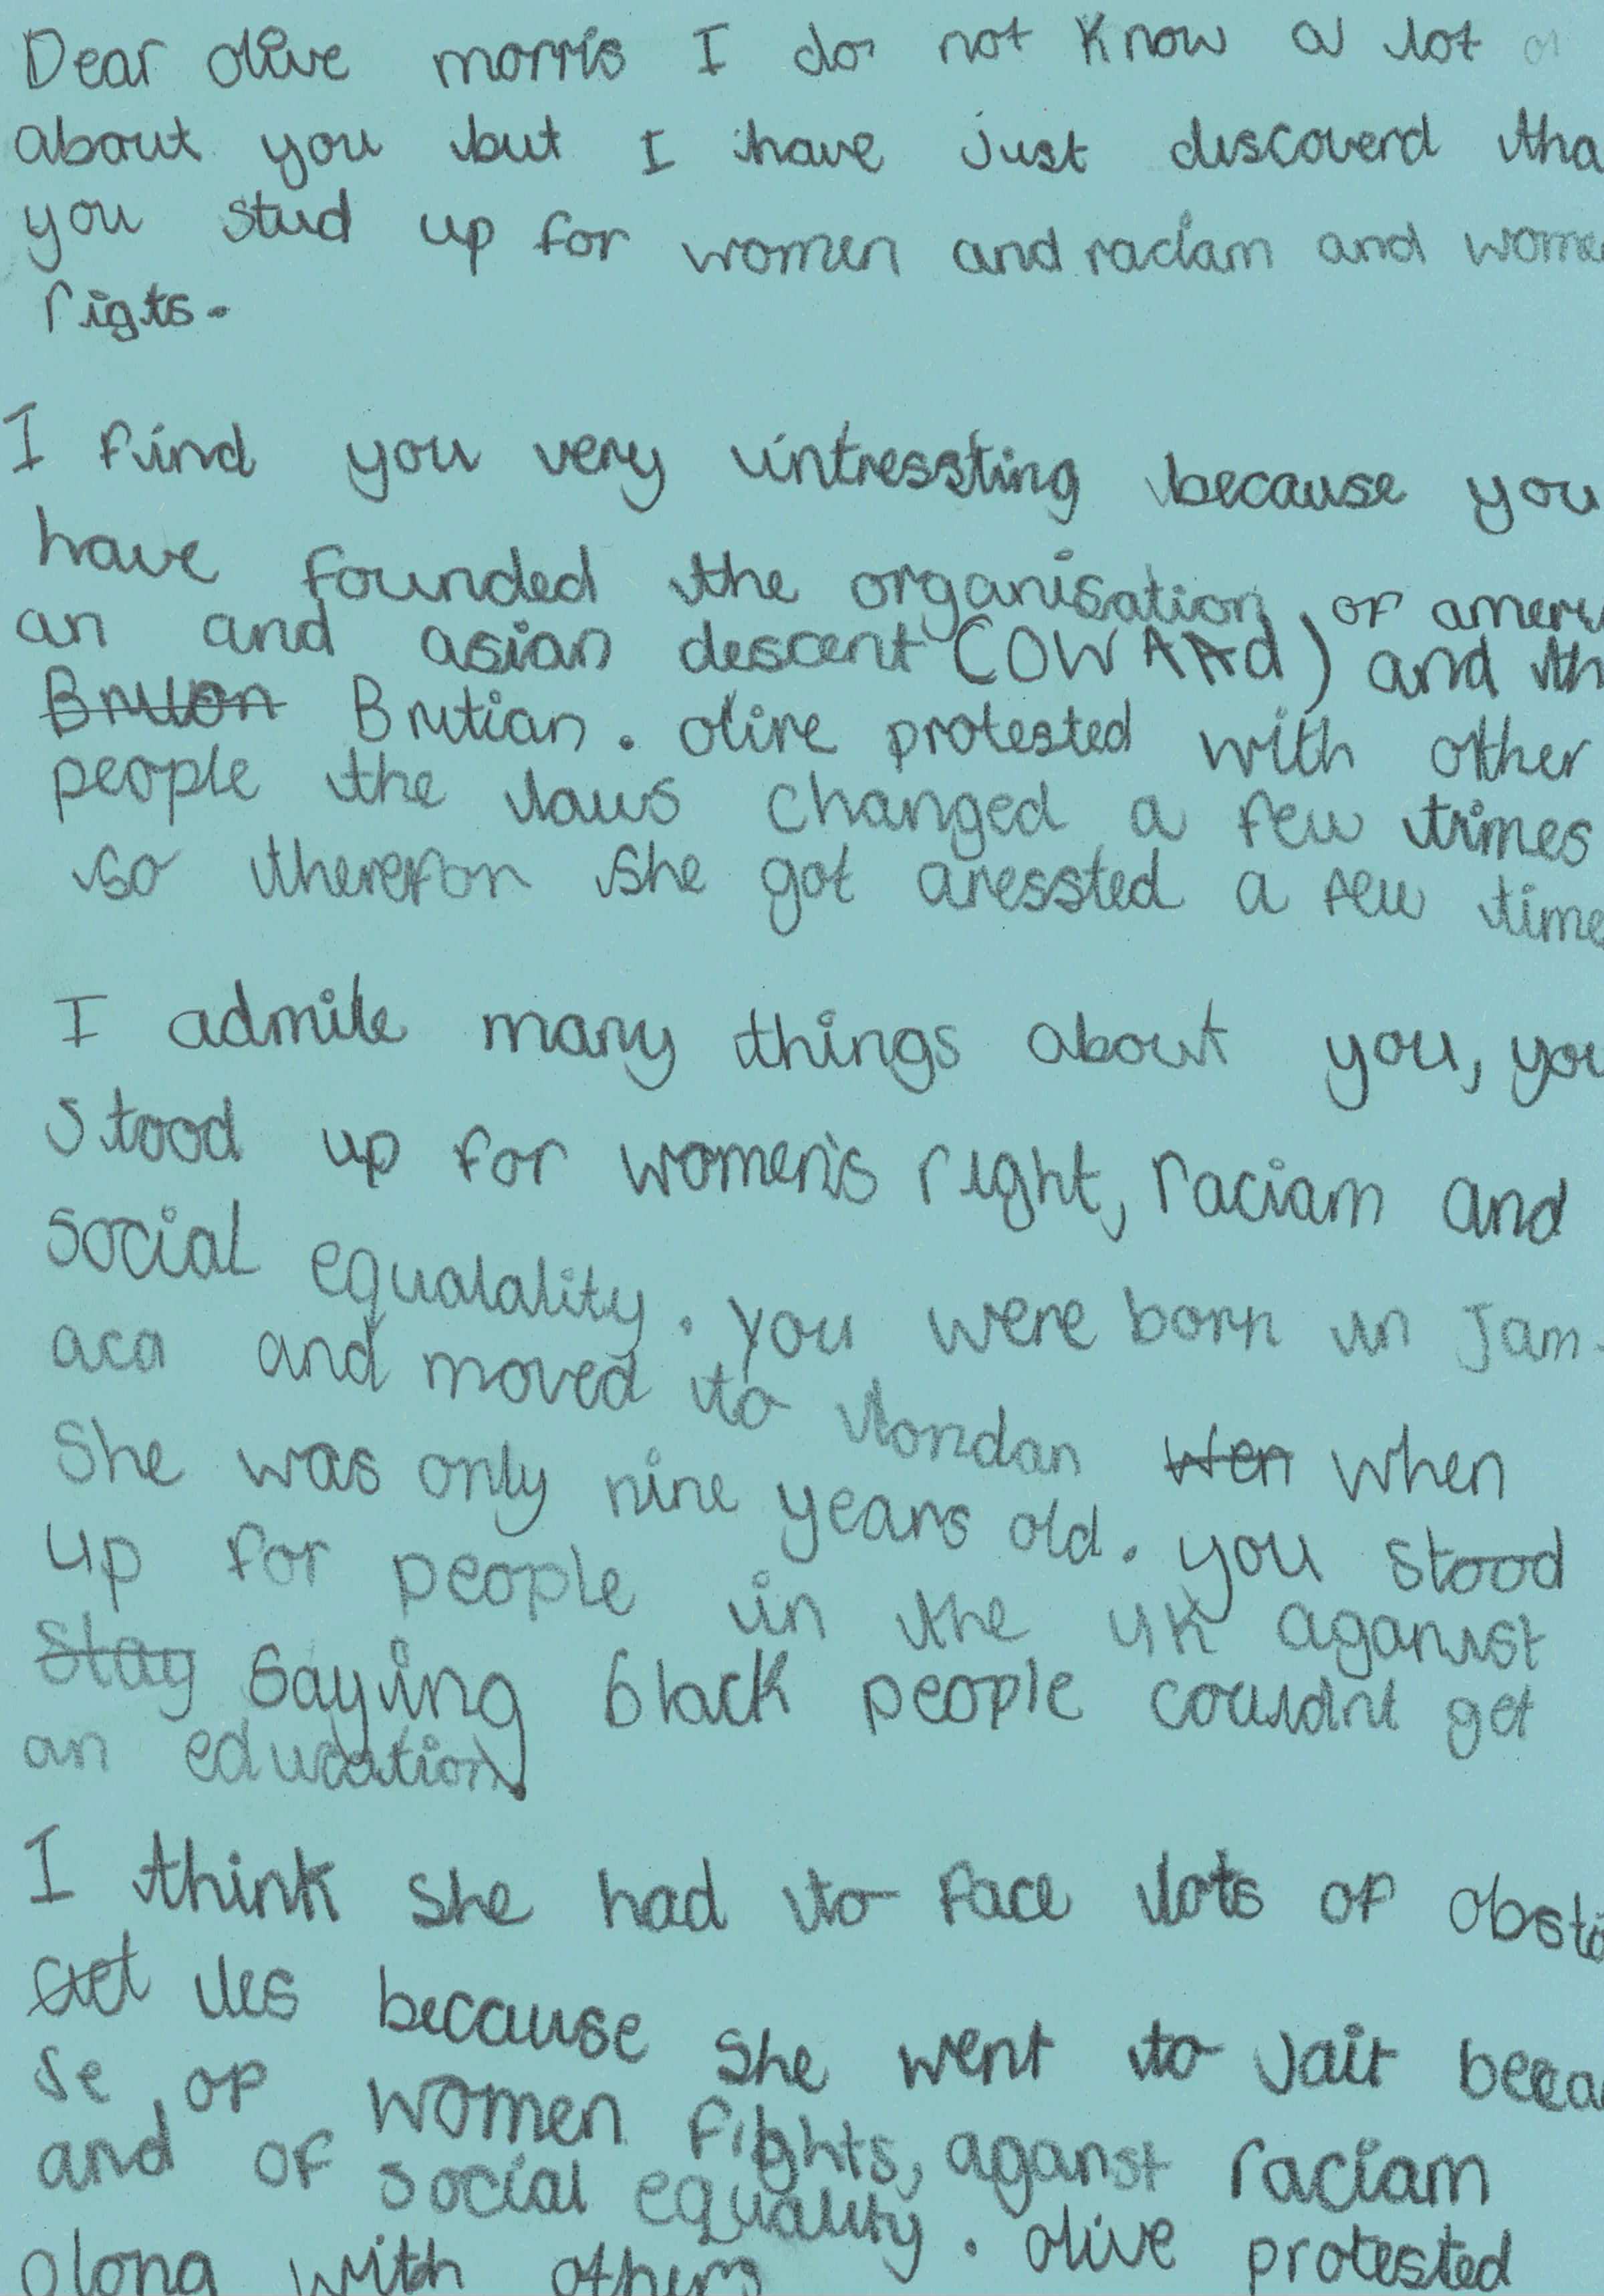 Dear olive morris I do not know a lot
about you but I have just discoverd tha
you stud up for women and raciam and wome
rigts.
I find you very intressting because you
have founded the organisation of ameri
an and asian descent (OWAAd) and th
Brition Britian. olive protested with other
people the laws changed a few times
so therefor she got aressted a few time
I admire many things about you, you
stood up for women's right, raciam and
social equalality. you were born in Jam
aca and moved to london wen when
She was only nine years old. you stood
up for people in the UK aganist
Stay Saying black people couldnt get
an education.
I think she had to face lots of obsta
les because she went to jail becau
se of women rights, aganst raciam
and of social equality. olive protested
along with others